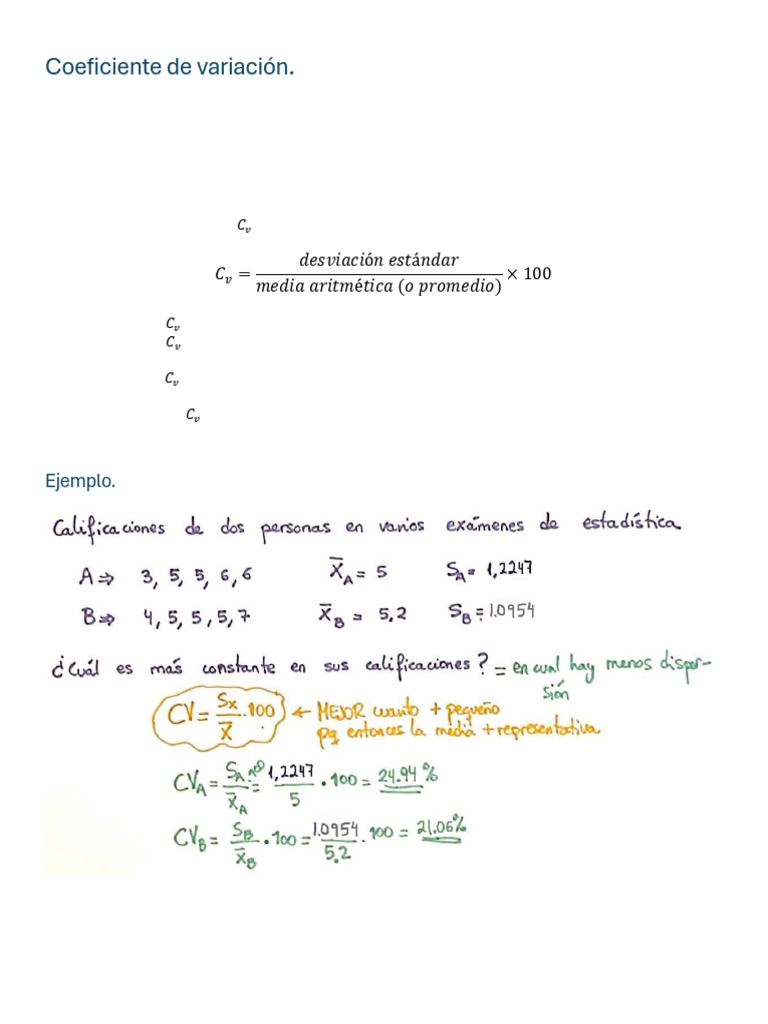 Coeficiente de variación.
Cᵥ
Cᵥ = desviación estándar / media aritmética (o promedio) × 100
Cᵥ
Cᵥ
Cᵥ
Cᵥ
Ejemplo.
Calificaciones de dos personas en varios exámenes de estadística
A ⇒ 3, 5, 5, 6, 6 X̄_A = 5 S_A = 1,2247
B ⇒ 4, 5, 5, 5, 7 X̄_B = 5,2 S_B = 1.0954
¿Cuál es más constante en sus calificaciones? = en cual hay menos disper-
sión
CV = Sx / X̄ · 100 ← MEJOR cuanto + pequeño
pq entonces la media + representativa
CV_A = S_A / X̄_A = 1,2247 / 5 · 100 = 24.94 %
CV_B = S_B / X̄_B · 100 = 1.0954 / 5,2 · 100 = 21.06%